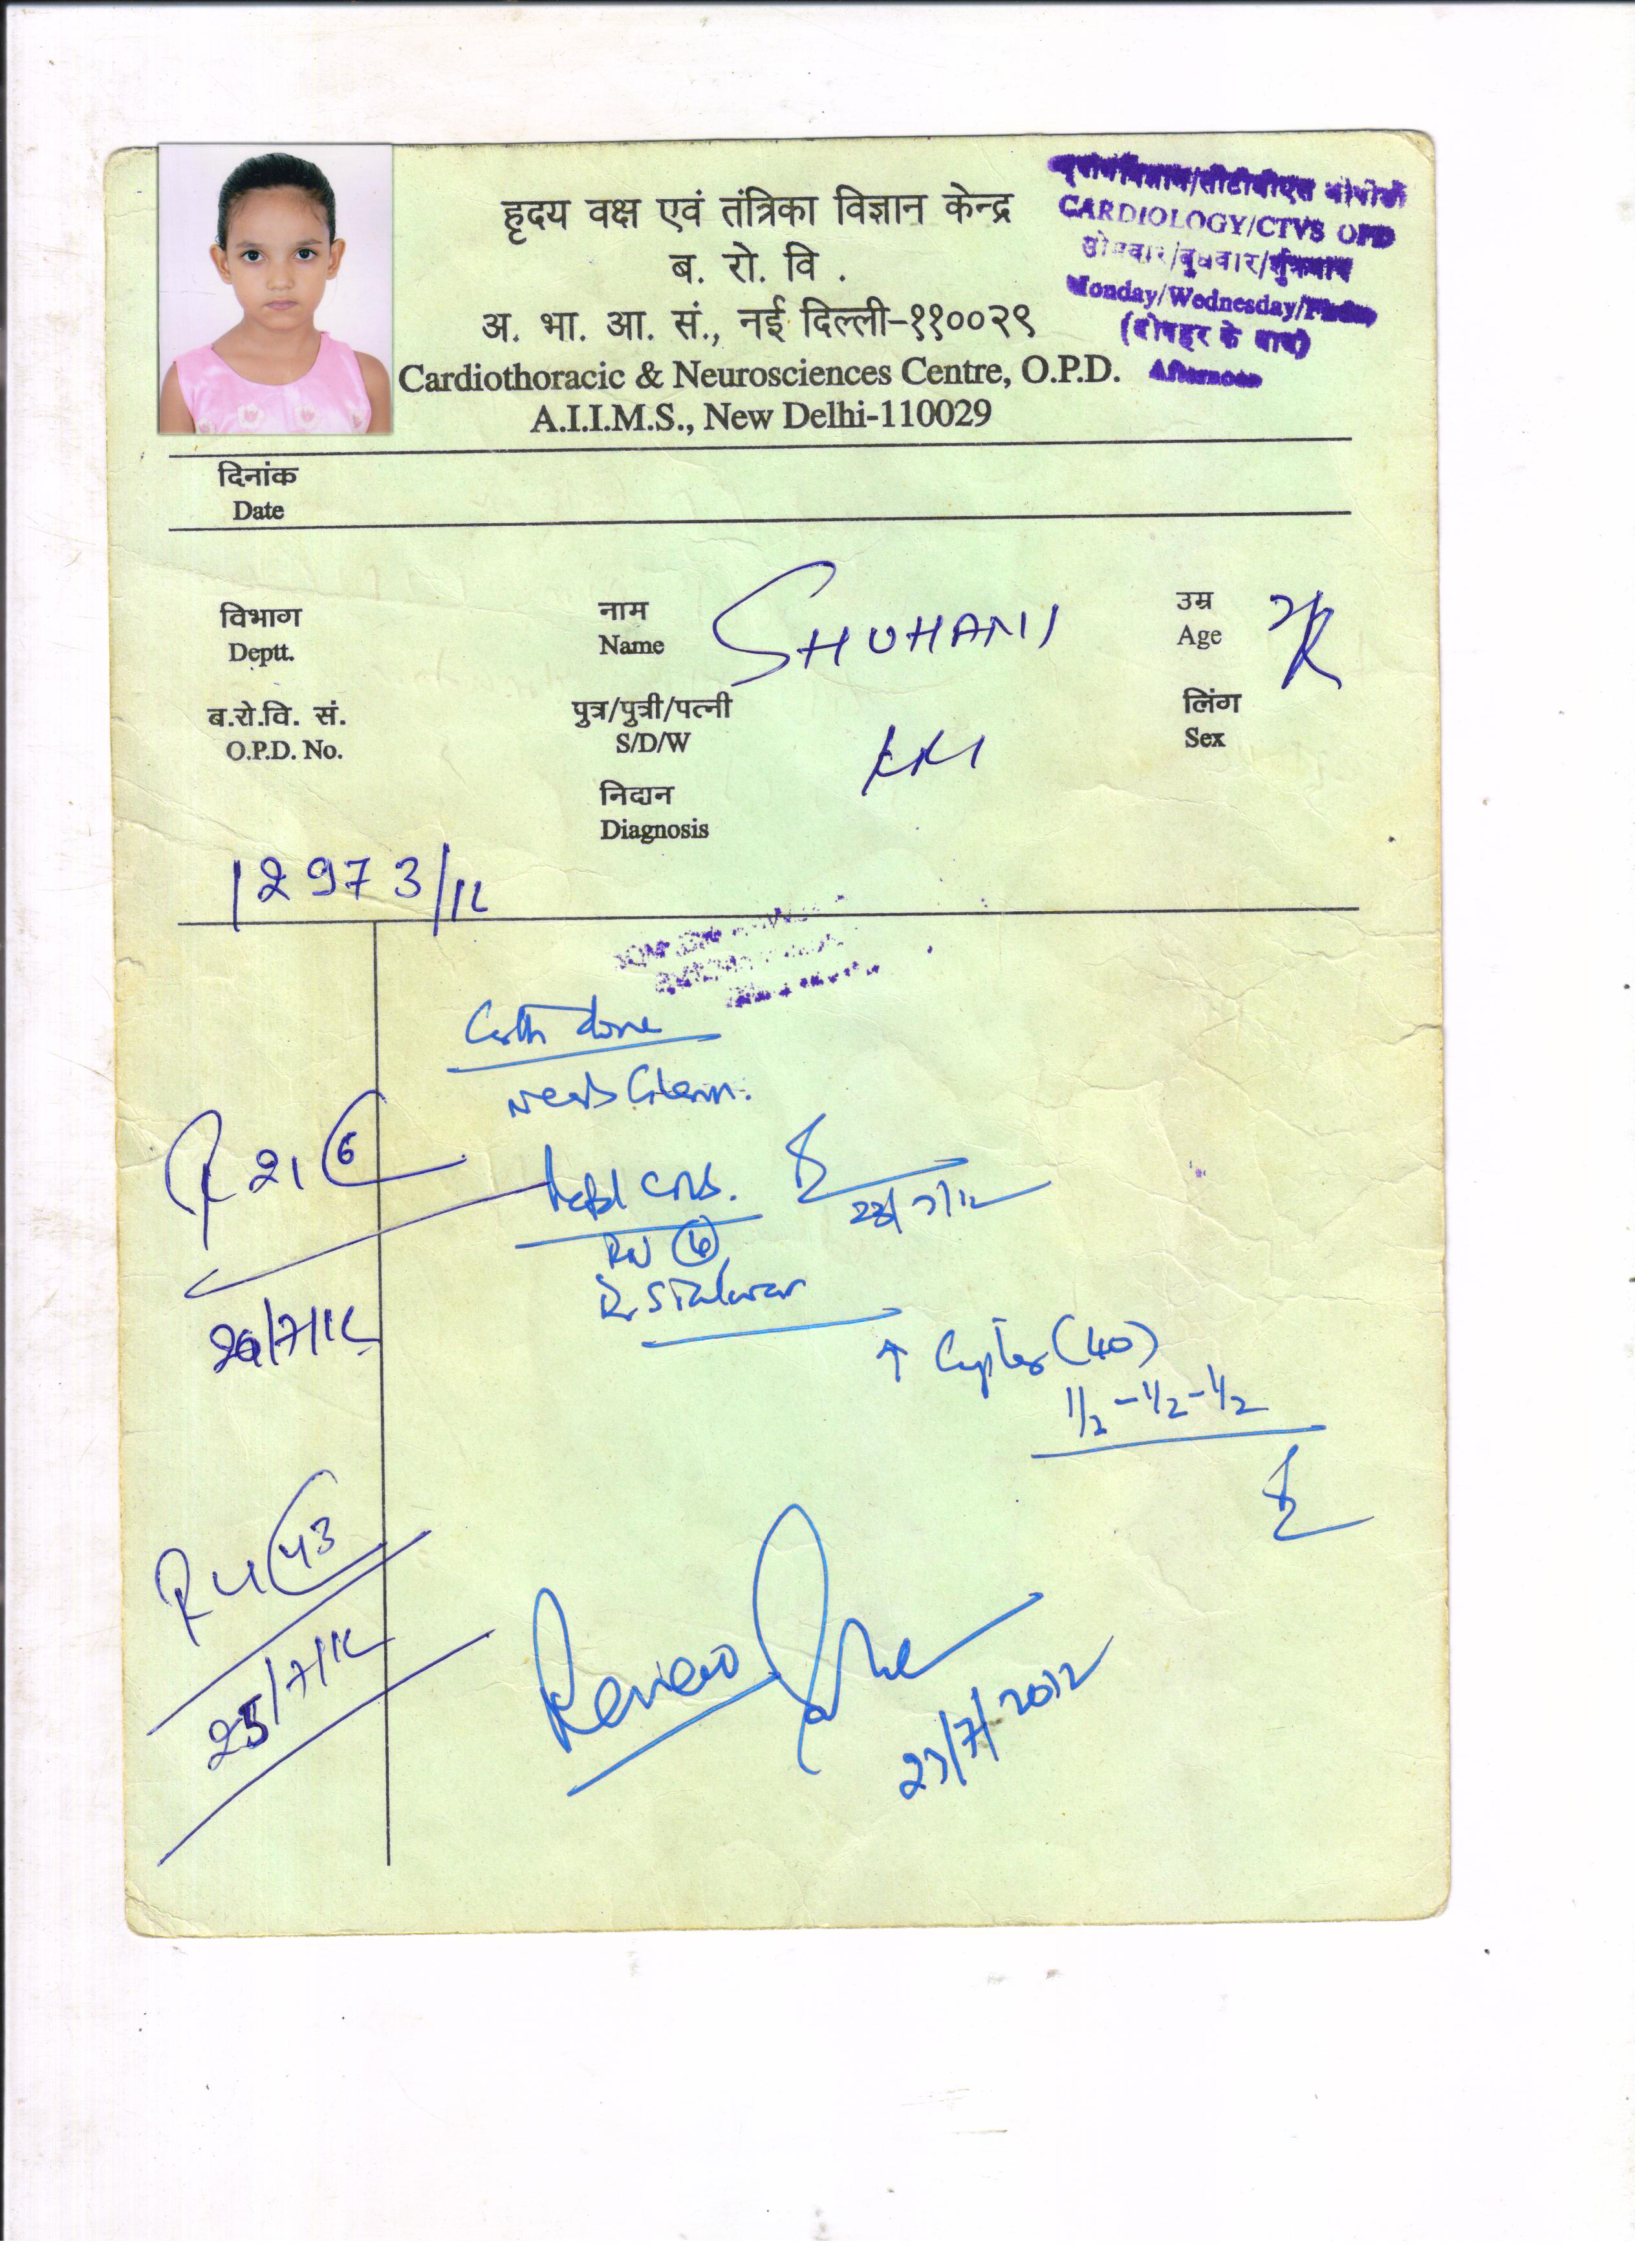 हृदय वक्ष एवं तंत्रिका विज्ञान केन्द्र
ब. रो. वि .
अ. भा. आ. सं., नई दिल्ली-११००२९
Cardiothoracic & Neurosciences Centre, O.P.D.
A.I.I.M.S., New Delhi-110029
CARDIOLOGY/CTVS OPD
Monday/Wednesday/
(दोपहर के बाद)
Afternoon
दिनांक
Date
विभाग
Deptt.
नाम
Name SHUHANI
उम्र
Age
ब.रो.वि. सं.
O.P.D. No.
पुत्र/पुत्री/पत्नी
S/D/W
लिंग
Sex
निदान
Diagnosis
12973/12
Cath done
Needs Glenn.
R 21 6
23/7/12
RN 6
26/7/12
(40)
1/2 - 1/2 - 1/2
R 4 43
25/7/12
Review
23/7/2012